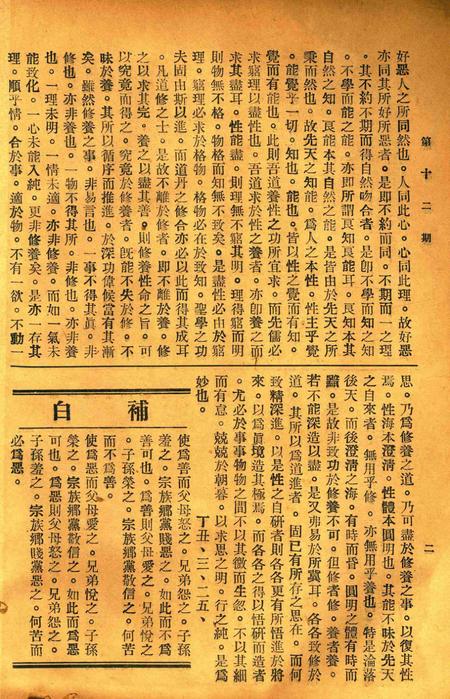 第十二期
二
好惡人之所同然也。人同此心。心同此理。故好惡
亦同其所好所惡者。是即不約而同。不期而一之理
其不約不期而得自然吻合者。是卽不學而知之知
。不學而能之能。亦即所謂良知良能耳。良知本其
自然之知。良能本其自然之能。是皆由於先天之
秉而然也。故先天之知能。爲人之本性。性主乎覺
。能覺乎一切。知也。能也。皆以性之覺而有知。
覺而有能也。此則吾道養性之功所宜求。而先儒必
求窮理以盡性也。吾道求於性之養者。亦卽養之而
求其盡耳。性能盡。則理無不窮其明。理得窮而明
則物無不格。物格而知無不致矣。是盡性必由於窮
理。窮理必求於格物。格物必在於致知。聖學之功
夫固由斯以進。而道丹之修合亦必以此而得其成耳
。凡道修之士。是故不離於修者。即不離於養。修
之以求其完。養之以盡其善。則修養性命之旨。可
以究竟而得之。究竟於修養者。旣能不失於修。不
昧於養。其所以循序而推進。於深功偉候當有其漸
矣。雖然修養之事。非易言也。一事不得其眞。非
修也。亦非養也。一物不得其所。非修也。亦非養
也。一理未明。一情未適。亦非修養。而如一氣未
能致化。一心未能入純。更非修養矣。是亦一存其
理。順乎情。合於事。適於物。不有一欲。不動一
思。乃爲修養之道。乃可盡於修養之事。以復其性
焉。性海本澄清。性體本圓明也。其能不昧於先天
之自來者。無用乎修。亦無用乎養也。特是淪落
後天。而後澄清之海。有時而昏。圓明之體有時而
翳。是故非致功於修養不可。但修者修。養者養。
若不能深造以盡。是又弗易於所冀耳。各各致修於
道。其所以爲道進者。固已有所存之思在。而何
致精深進。以是性之自研者則各各更有所悟進於將
來。以爲眞境造其極焉。而各各之得以悟研而造者
。尤必於事事物物之間不以其微而生忽。不以其細
而有怠。兢兢於朝暮。以求思之明。行之純。是爲
妙也。
丁丑、三、二五、
補白
使爲善而父母怒之。兄弟怨之。子孫
羞之。宗族鄉黨賤惡之。如此而不爲
善可也。爲善則父母愛之。兄弟悅之
。子孫榮之。宗族鄉黨敬信之。何苦
而不爲善。
使爲惡而父母愛之。兄弟悅之。子孫
榮之。宗族鄉黨敬信之。如此而爲惡
可也。爲惡則父母怒之。兄弟怨之。
子孫羞之。宗族鄉黨賤惡之。何苦而
必爲惡。